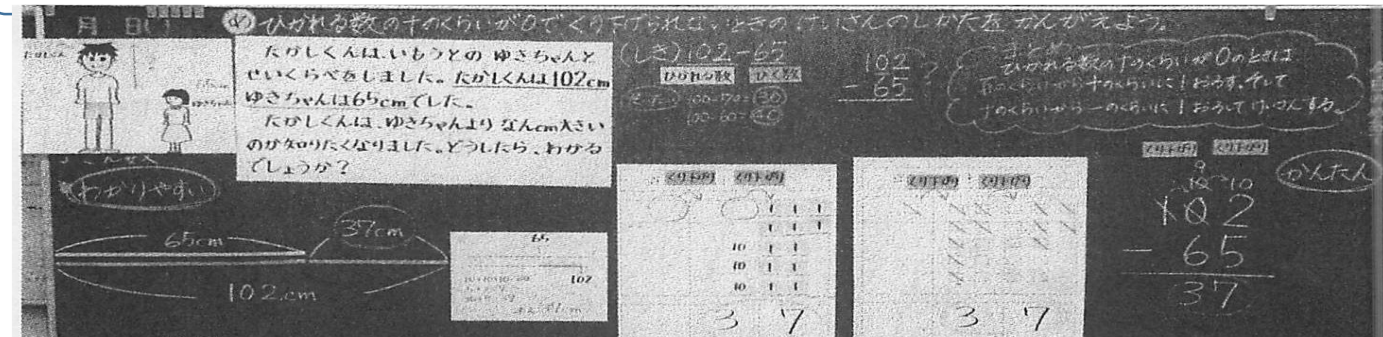 月 日( )
め ひかれる数の十のくらいが0でくり下げられないときのけいさんのしかたをかんがえよう。
たかしくんは、いもうとの ゆきちゃんと
せいくらべをしました。たかしくんは102cm
ゆきちゃんは65cmでした。
たかしくんは、ゆきちゃんより なんcm大きい
のか知りたくなりました。どうしたら、わかる
でしょうか？
(しき)102-65
ひかれる数 ひく数
100-70=30
100-60=40
102
- 65
?
まとめ
ひかれる数の十のくらいが0のときは
百のくらいから十のくらいに1おろす。そして
十のくらいから一のくらいに1おろしてけいさんする。
わかりやすい
65cm
37cm
102cm
65
102
くり下がり くり下がり
1 1 1
1 1 1
10 1 1
10 1 1
10 1 1
3 7
くり下がり くり下がり
3 7
くり下がり くり下がり
9
10 10
102
- 65
37
かんたん